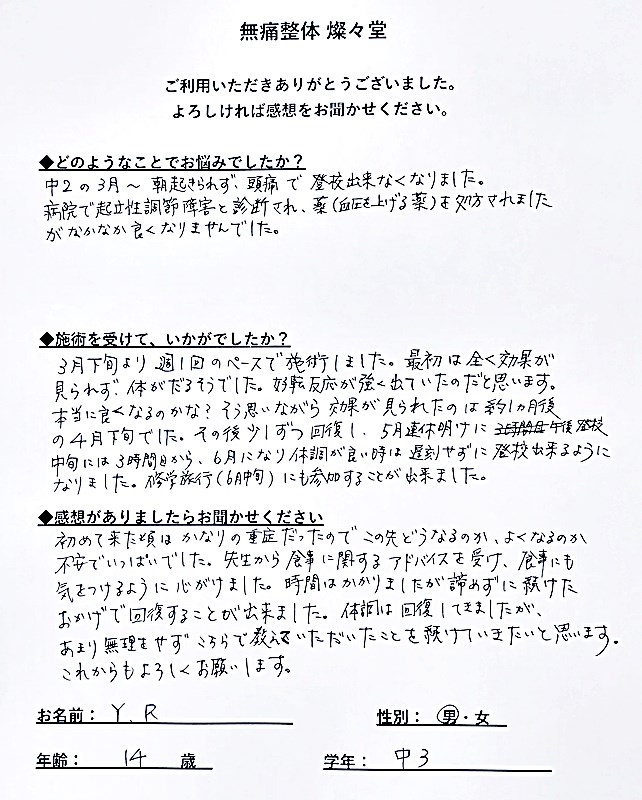 無痛整体 燦々堂
ご利用いただきありがとうございました。
よろしければ感想をお聞かせください。
◆どのようなことでお悩みでしたか？
中2の3月～朝起きられず、頭痛で登校出来なくなりました。
病院で起立性調節障害と診断され、薬(血圧を上げる薬)を処方されました
がなかなか良くなりませんでした。
◆施術を受けて、いかがでしたか？
3月下旬より週1回のペースで施術しました。最初は全く効果が
見られず、体がだるそうでした。好転反応が強く出ていたのだと思います。
本当に良くなるのかな？そう思いながら効果が見られたのは約1カ月後
の4月下旬でした。その後少しずつ回復し、5月連休明けに午後登校
中旬には3時間目から、6月になり体調が良い時は遅刻せずに登校出来るように
なりました。修学旅行(6月中旬)にも参加することが出来ました。
◆感想がありましたらお聞かせください
初めて来た頃はかなりの重症だったのでこの先どうなるのか、よくなるのか
不安でいっぱいでした。先生から食事に関するアドバイスを受け、食事にも
気をつけるように心がけました。時間はかかりましたが諦めずに続けた
おかげで回復することが出来ました。体調は回復してきましたが、
あまり無理をせずこちらで教えていただいたことを続けていきたいと思います。
これからもよろしくお願いします。
お名前： Y.R 性別： 男・女
年齢： 14 歳 学年： 中3